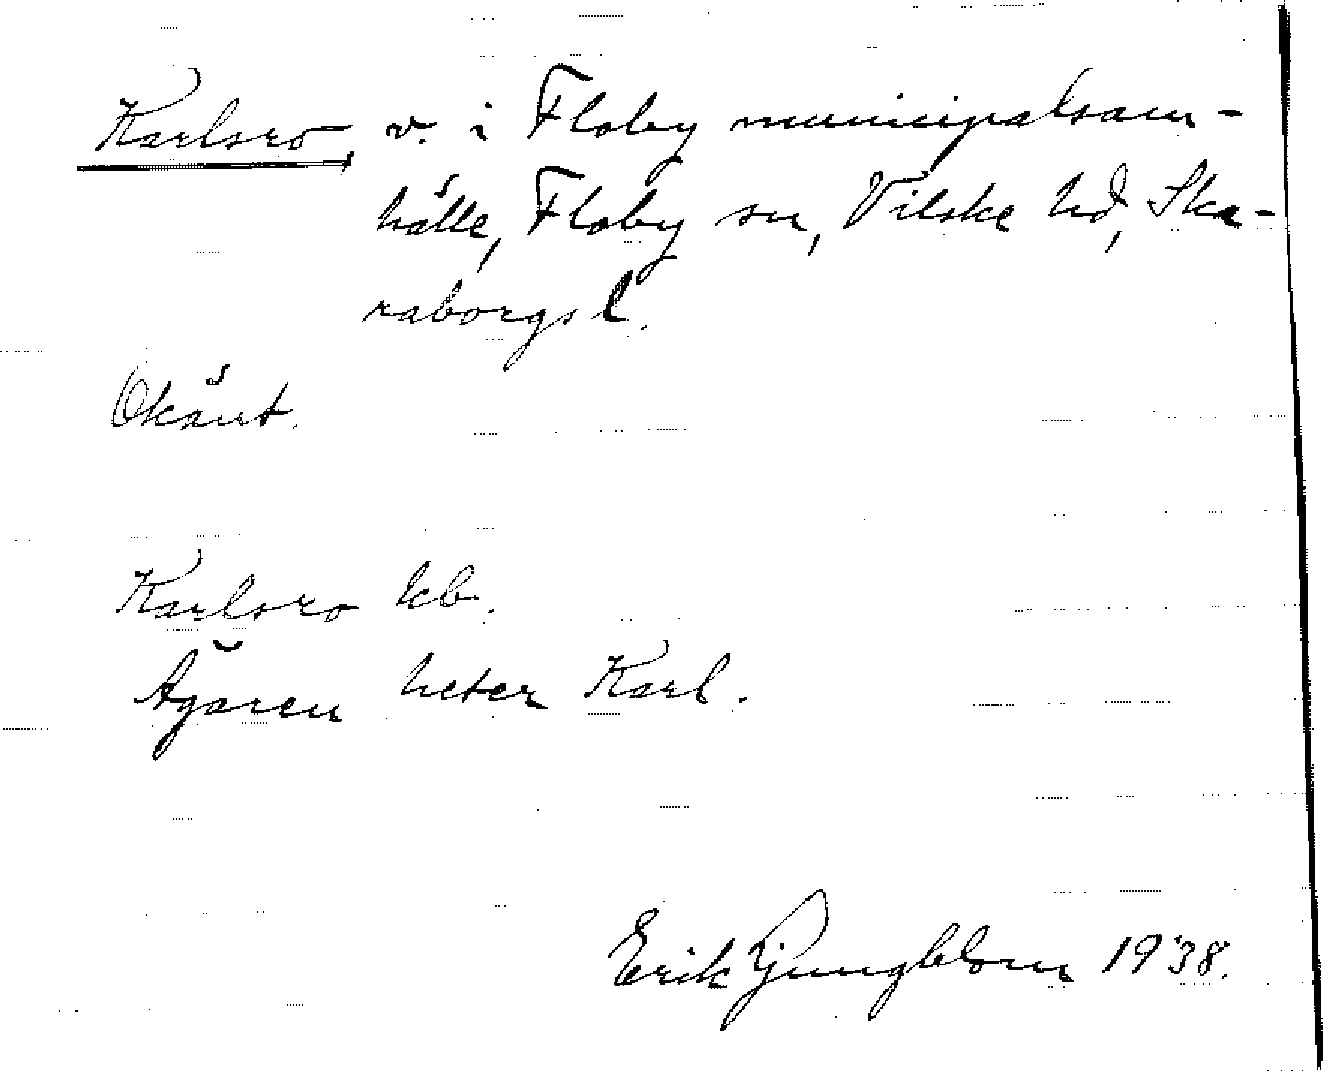 Karlsro v. i Floby municipalsam-
hälle, Floby sn, Vilske hd, Ska-
raborgs l.
Okänt.
Karlsro kb.
Ägaren heter Karl.
Erik Ljungblom 1938.